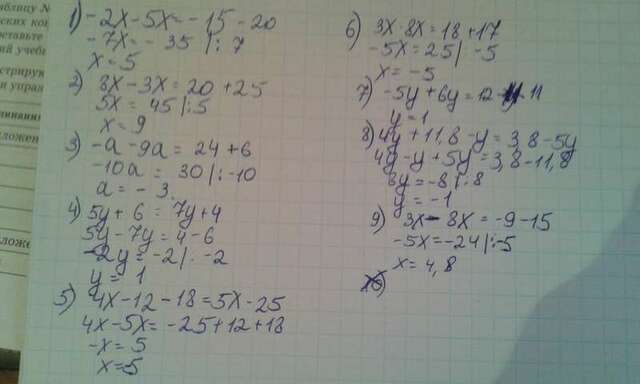 аблицу №
ских кон
оставьте
ий учебн
стрирую
и управ
ложен
ложе
1) -2x-5x=-15-20
-7x=-35 |:7
x=5
2) 8x-3x=20+25
5x=45 |:5
x=9
3) -a-9a=24+6
-10a=30 |:-10
a=-3.
4) 5y+6=7y+4
5y-7y=4-6
-2y=-2|:-2
y=1
5) 4x-12-18=5x-25
4x-5x=-25+12+18
-x=5
x=-5
6) 3x-8x=18+17
-5x=25|-5
x=-5
7) -5y+6y=12-11
y=1
8) 4y+11,8-y=3,8-5y
4y-y+5y=3,8-11,8
8y=-8|:8
y=-1
9) 3x-8x=-9-15
-5x=-24|:-5
x=4,8